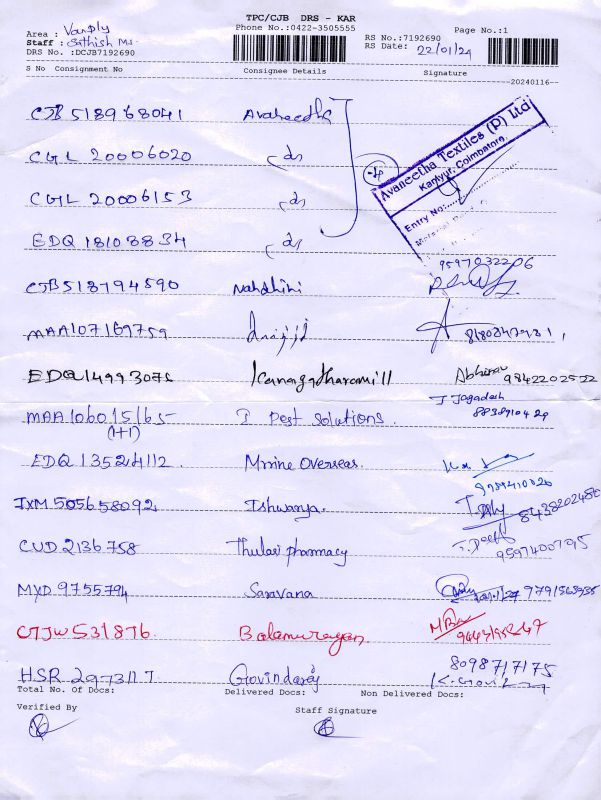 TPC/CJB DRS - KAR
Phone No.:0422-3505555 Page No.:1
Area : Vanply RS No.:7192690
Staff : Sathish Ms. RS Date: 22/01/24
DRS No. :DCJB7192690
S No Consignment No Consignee Details Signature
20240116
CJB 518968041 Avaneetha
CGL 20006020 do
CGL 20006153 do
EDQ 18108834 do
Avaneetha Textiles (P) Ltd
Kaniyur, Coimbatore.
Entry No:
9597032206
CJB 518794590 Nandhini
MAA107169759
EDQ 14993075 Kanagadharamill Abhinav 9842202522
MAA 106015165 I Pest Solutions. J Jagadesh
(1+1) 8838910429
EDQ 13524112. Mrine Overseas.
9789410020
IXM 505658092 Ishwarya.
CUD 2136758 Thulasi pharmacy
MYD 9755794 Saravana
CTJW 531876. Balamurugan.
HSR 2973117 Govindaraj 8098717175
Total No. of Docs: Delivered Docs: Non Delivered Docs:
Verified By Staff Signature